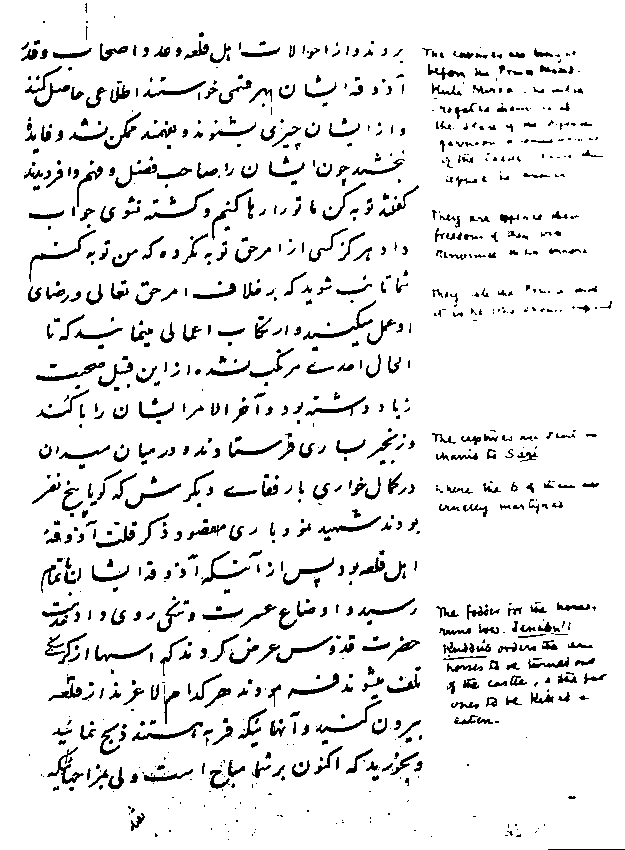 بردند و از احوالات اهل قلعه و عدد اصحاب و قدر
آذوقه ایشان بهر قسمی خواستند اطلاعی حاصل کنند
و از ایشان چیزی بشنوند و بفهمند ممکن نشد و فایدهٔ
نبخشید چون ایشان را صاحب فضل و فهم وافر دیدند
گفتند توبه کن تا تو را رها کنیم و کشته نشوی جواب
داد هرگز کسی از امر حق توبه نکرده که من توبه کنم
شما تائب شوید که بر خلاف امر حق تعالی و رضای
او عمل میکنید و ارتکاب اعمالی مینمائید که تا
الحال احدی مرتکب نشده از این قبیل صحبت
زیاد داشته بود و آخر الامر ایشان را با کند
و زنجیر بساری فرستادند و در میان میدان
در کمال خواری با رفقای دیگرش که گویا پنج نفر
بودند شهید نمودند باری مقصود ذکر قلت آذوقهٔ
اهل قلعه بود پس از آنیکه آذوقه ایشان باتمام
رسید و اوضاع عسرت و تنگی روی داد خدمت
حضرت قدوس عرض کردند که اسبها از گرسنگی
تلف میشوند فرمودند هر کدام لاغرند از قلعه
بیرون کنید و آنهائیکه فربه هستند ذبح نمائید
و بخورید که اکنون بر شما مباح است ولی بجز اصحابیکه
The captives are brought
before the Prince
They are offered their
freedom if they will
They the Prince and
The captives are sent in
chains to Sarí
where the 5 of them are
cruelly martyred
The fodder for the horses
runs low. Jenabu'l
Kuddús orders the lean
horses to be turned out
of the castle, & the fat
ones to be killed &
eaten.